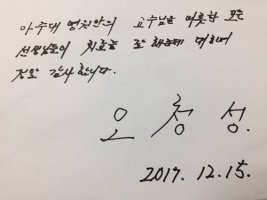 아주대 병원의 교수님을 비롯한 모든
선생님들이 치료를 잘 해준데 대하여
정말 감사합니다.
오 청 성.
2017. 12. 15.